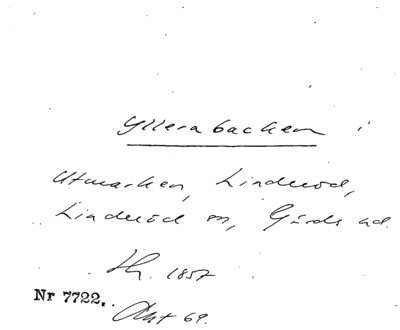 Yllerabacken i
Utmarken, Linderöd,
Linderöd sn, Gärds hd.
Sk. 1857
Nr 7722.
Akt 69.